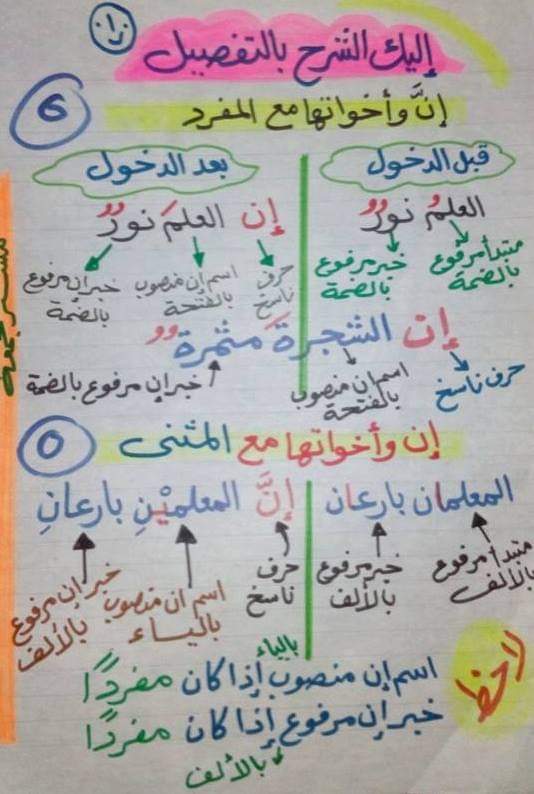 إليك الشرح بالتفصيل
إنَّ وأخواتها مع المفرد
6
قبل الدخول
بعد الدخول
العلمُ نورٌ
إن العلمَ نورٌ
مبتدأ مرفوع بالضمة
خبر مرفوع بالضمة
حرف ناسخ
اسم إن منصوب بالفتحة
خبر إن مرفوع بالضمة
إن الشجرةَ مثمرةٌ
حرف ناسخ
اسم إن منصوب بالفتحة
خبر إن مرفوع بالضمة
إن وأخواتها مع المثنى
5
المعلمان بارعان
إنَّ المعلميْنِ بارعانِ
مبتدأ مرفوع بالألف
خبر مرفوع بالألف
حرف ناسخ
اسم إن منصوب بالياء
خبر إن مرفوع بالألف
لاحظ
اسم إن منصوب بالياء إذا كان مفردًا
خبر إن مرفوع إذا كان مفردًا
بالألف